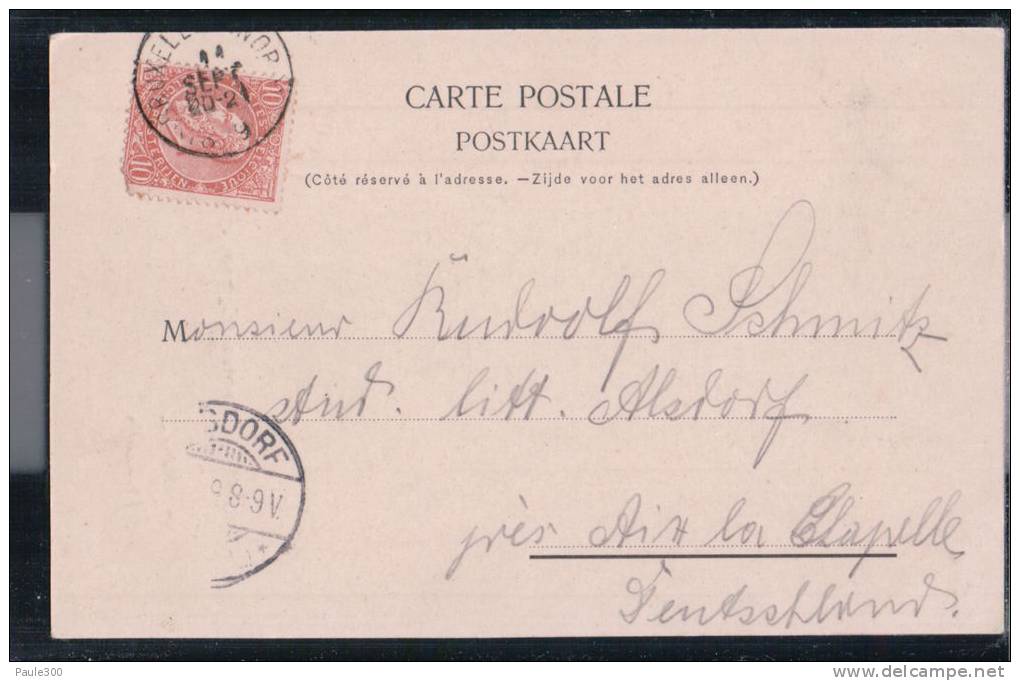 BRUXELLES NORD
11
SEPT
20-21
10
10
CARTE POSTALE
POSTKAART
(Côté réservé à l'adresse. — Zijde voor het adres alleen.)
Monsieur Rudolf Schmitz
stud. litt. Alsdorf
près Aix la Chapelle
Deutschland.
SDORF
8-9V.
Paule300
www.delcampe.net